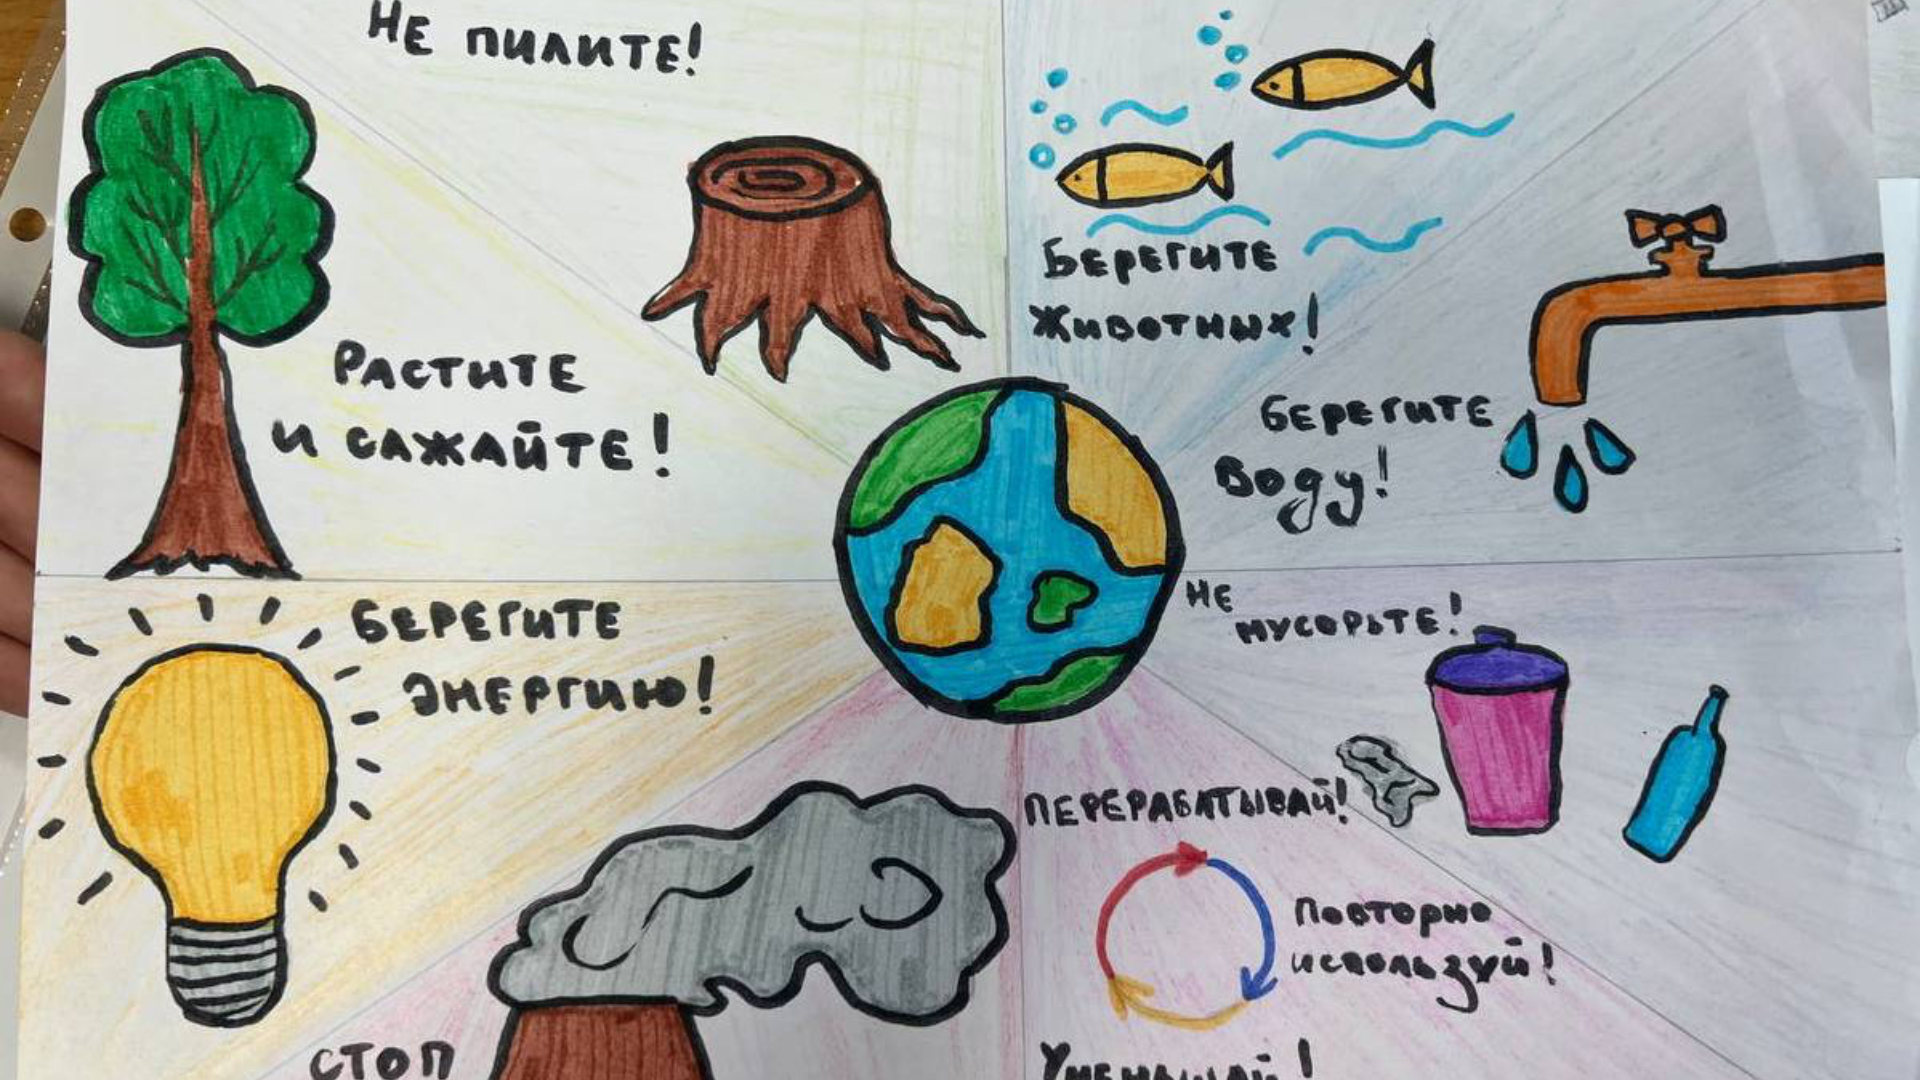 НЕ ПИЛИТЕ!
РАСТИТЕ
И САЖАЙТЕ!
БЕРЕГИТЕ
ЖИВОТНЫХ!
БЕРЕГИТЕ
ВОДУ!
БЕРЕГИТЕ
ЭНЕРГИЮ!
НЕ
МУСОРЬТЕ!
ПЕРЕРАБАТЫВАЙ!
ПОВТОРНО
ИСПОЛЬЗУЙ!
УМЕНЬШАЙ!
СТОП